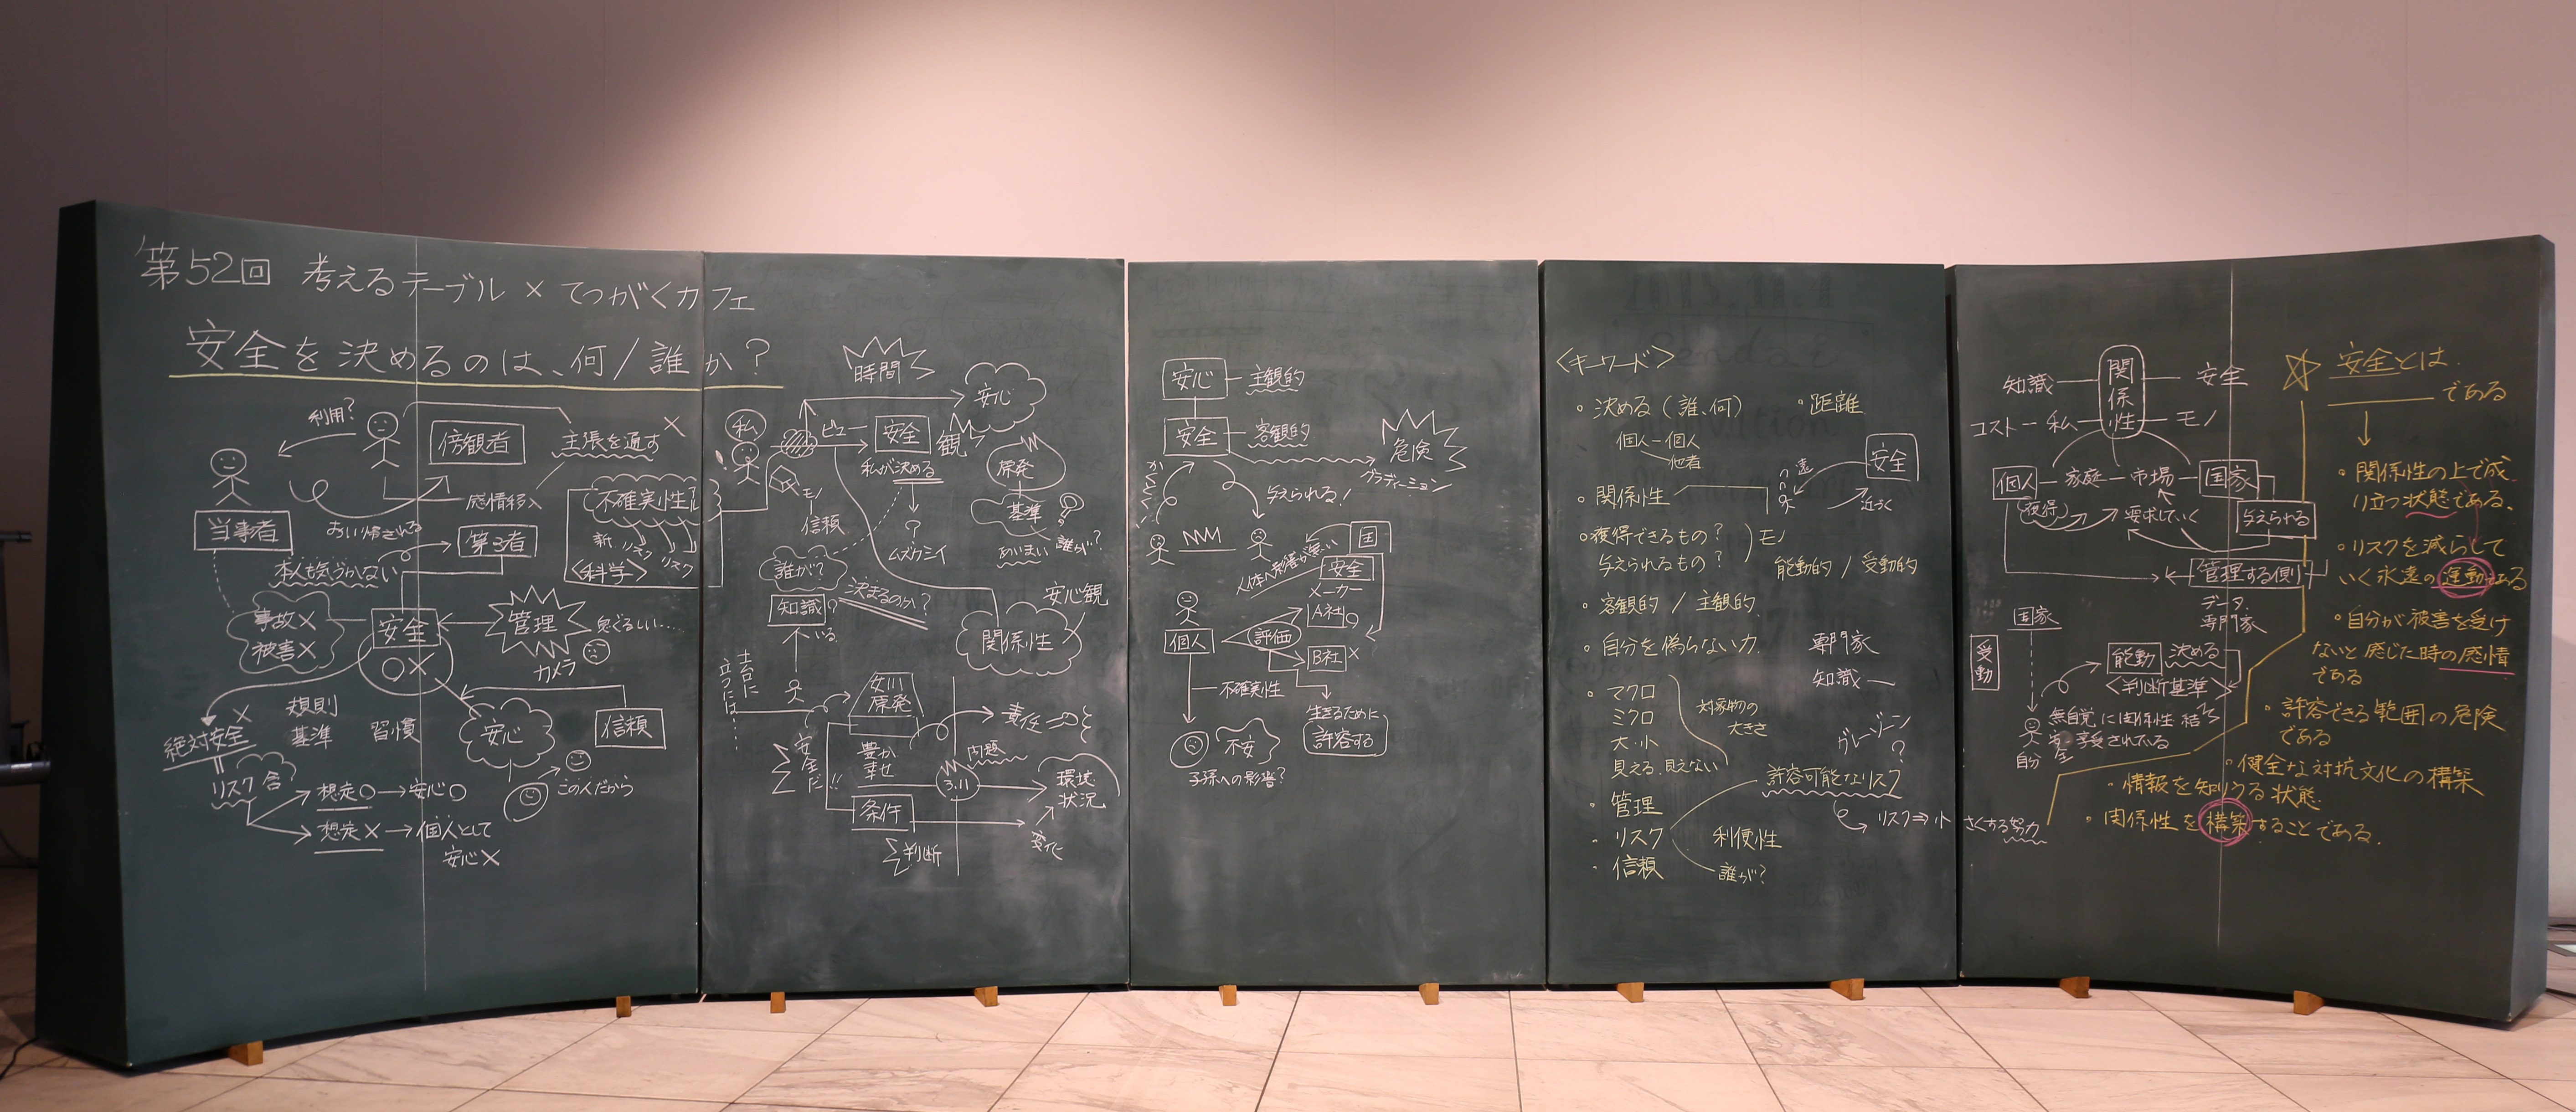 第52回 考えるテーブル × てつがくカフェ
安全を決めるのは、何/誰か?
利用?
傍観者
主張を通す ×
当事者
感情移入
不確実性
新 リスク リスク
<科学>
第3者
本人も気づかない
事故×
被害×
安全
○×
管理
カメラ
絶対安全 ×
規則
基準
習慣
安心
信頼
リスク含
想定○→安心○
想定×→個人として
安心×
この人だから
時間
安心
私
ビュー
安全 観
私が決める
モノ
信頼
?
ムズカシイ
原発
基準
あいまい 誰が?
誰が?
知識?
いる
決まるのか?
安心観
関係性
土台に
立つには…
女川
原発
安全だ!!
責任
豊か
幸せ
問題
3.11
環境
状況
条件
変化
判断
安心 主観的
安全 客観的
危険
グラデーション
与えられる!
国
安全
メーカー
A社○
個人
評価
B社×
不確実性
不安
子孫への影響?
生きるために
許容する
<キーワード>
・決める(誰、何)
・距離
個人―個人
他者
安全
遠
近づく
・関係性
・獲得できるもの?
与えられるもの?
モノ
能動的 / 受動的
・客観的 / 主観的
・自分を偽らない力
専門家
知識
・マクロ
ミクロ
大・小
見える、見えない
対象物の
大きさ
グレーゾーン
?
許容可能なリスク
・管理
・リスク
・信頼
利便性
誰が?
リスク⇒小さくする努力
知識 関係性 安全
コスト―私 モノ
個人―家庭―市場―国家
要求していく
与えられる
管理する側
データ
専門家
国家
受動
能動 決める
<判断基準>
無自覚に関係性
享受されている
自分
☆ 安全とは
である
・関係性の上で成
り立つ状態である。
・リスクを減らして
いく永遠の運動である
・自分が被害を受け
ないと感じた時の感情
である
・許容できる範囲の危険
である
・健全な対抗文化の構築
・情報を知りうる状態
・関係性を構築することである。